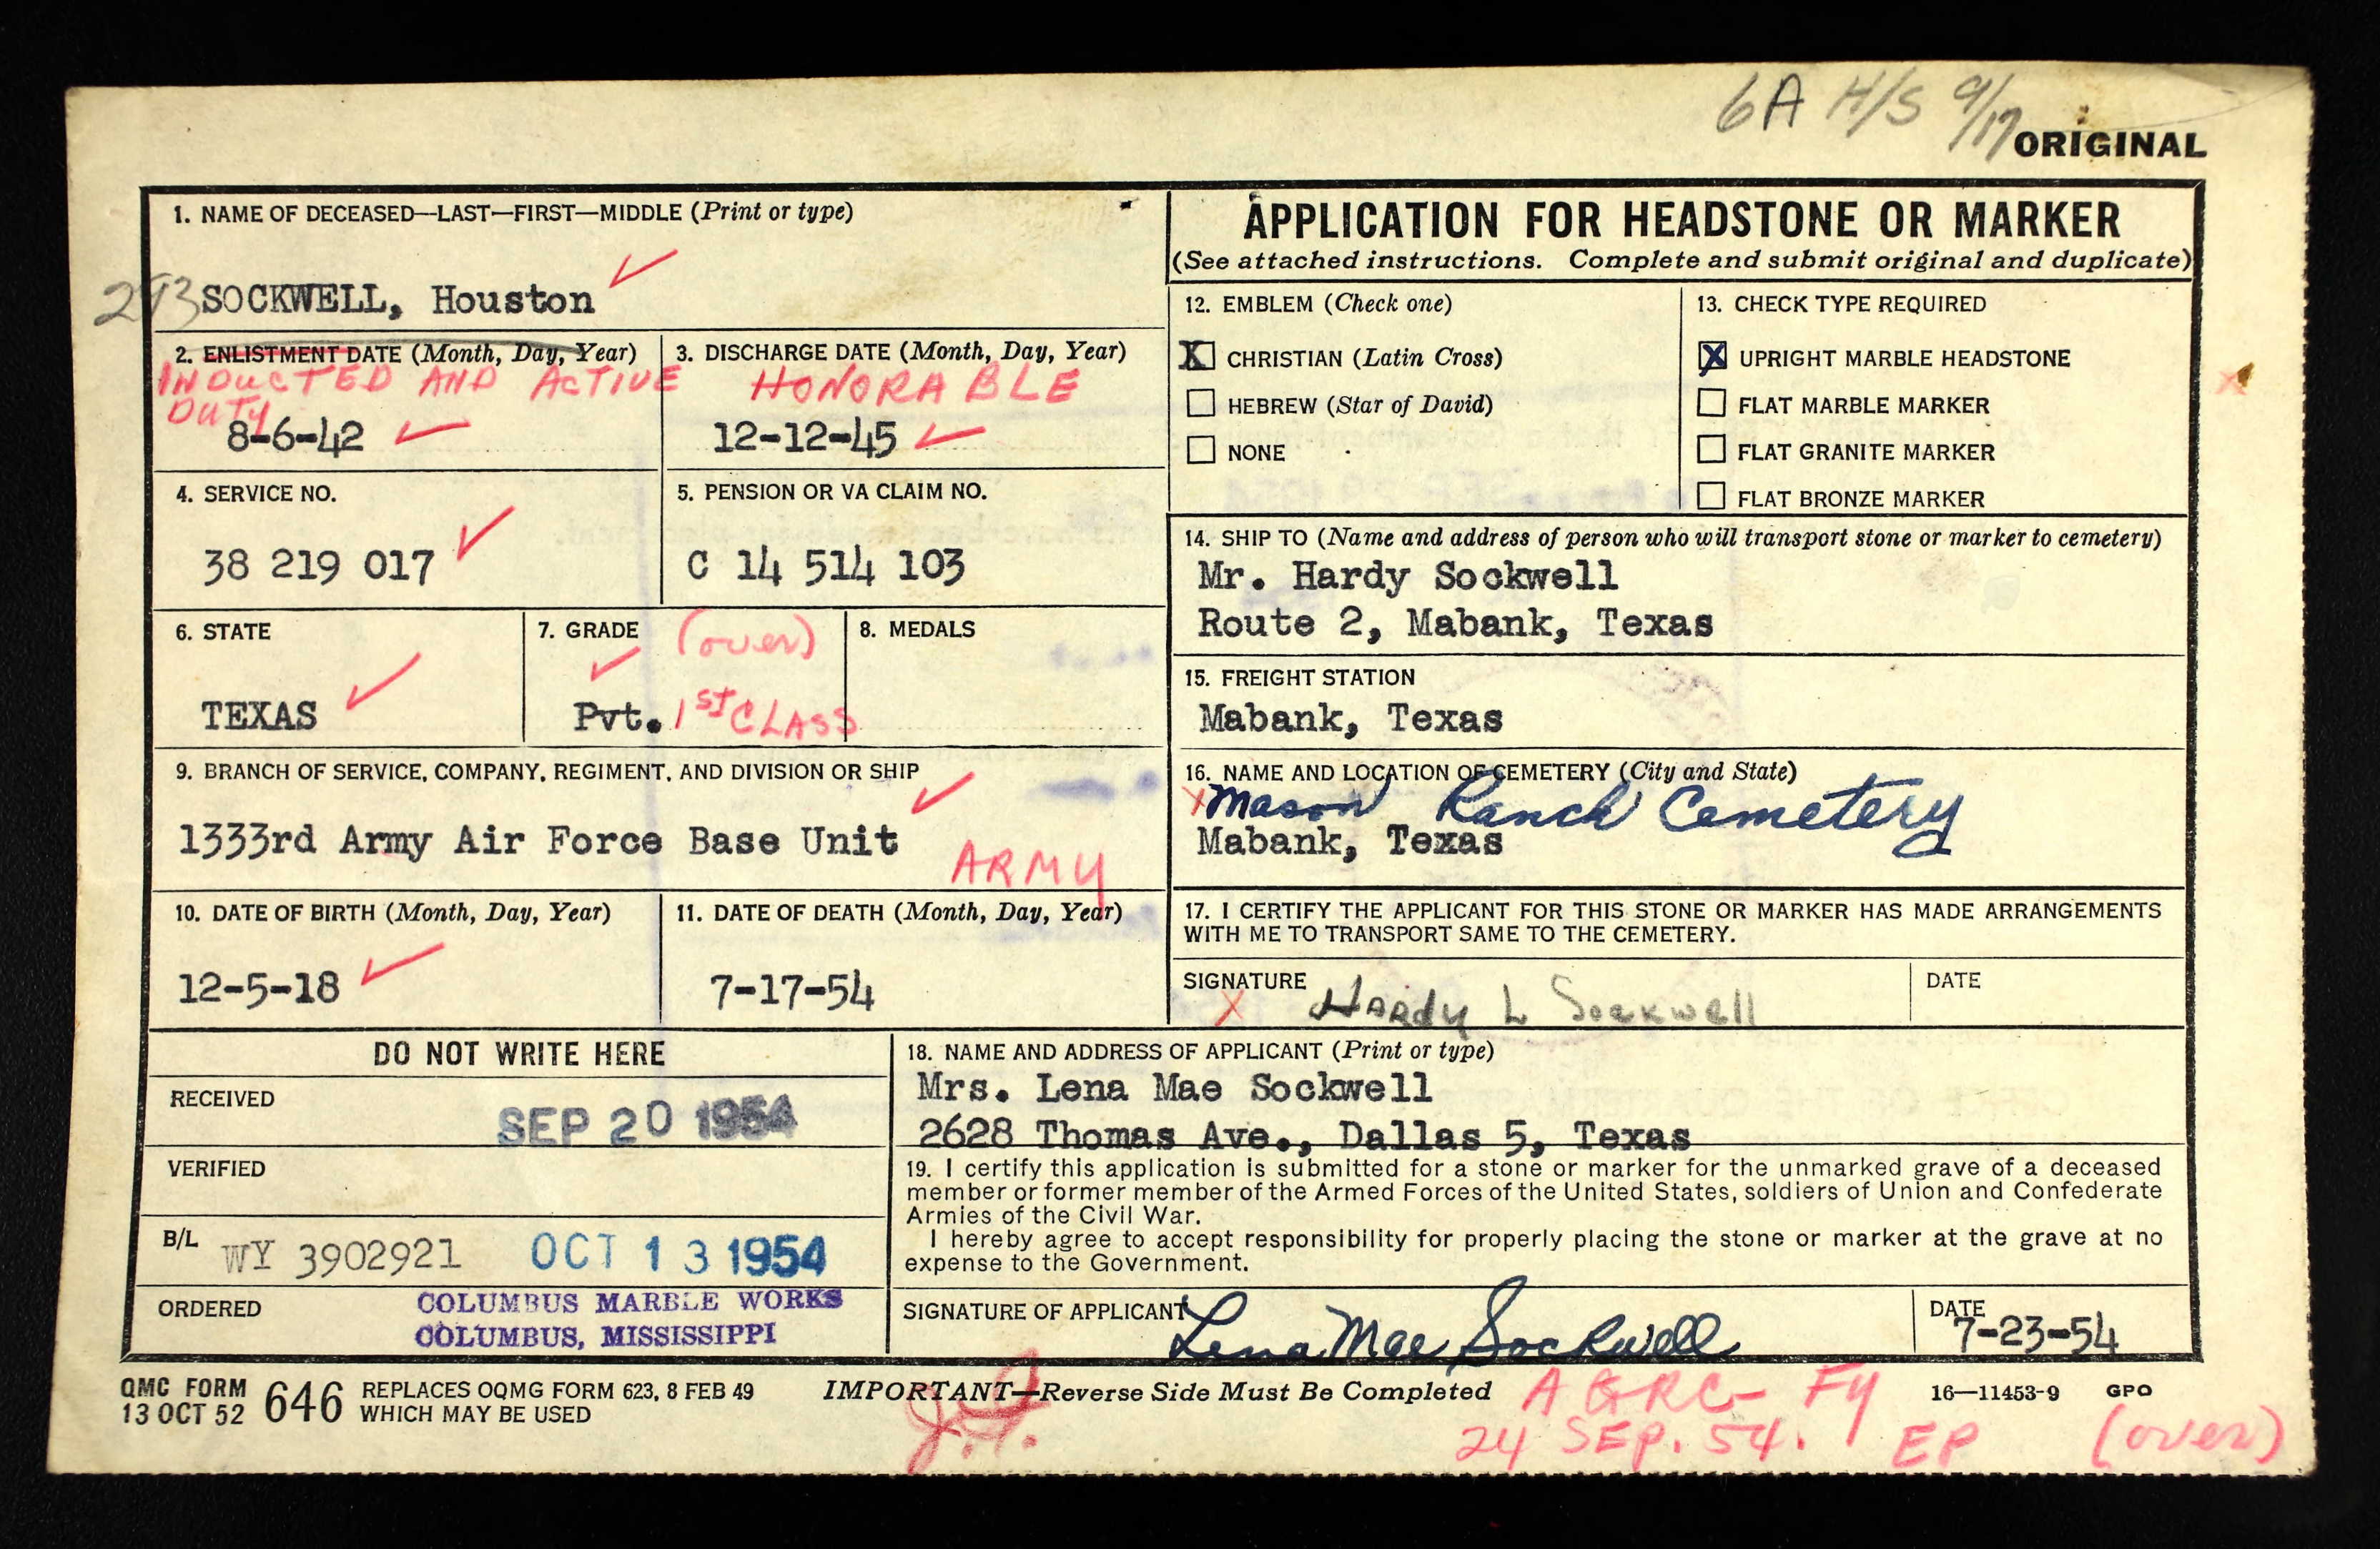 6A H/S 9/17
ORIGINAL
1. NAME OF DECEASED—LAST—FIRST—MIDDLE (Print or type)
293 SOCKWELL, Houston
2. ENLISTMENT DATE (Month, Day, Year)
INDUCTED AND ACTIVE
DUTY
8-6-42
3. DISCHARGE DATE (Month, Day, Year)
HONORABLE
12-12-45
4. SERVICE NO.
38 219 017
5. PENSION OR VA CLAIM NO.
C 14 514 103
6. STATE
TEXAS
7. GRADE (over)
Pvt. 1ST CLASS
8. MEDALS
9. BRANCH OF SERVICE, COMPANY, REGIMENT, AND DIVISION OR SHIP
1333rd Army Air Force Base Unit
ARMY
10. DATE OF BIRTH (Month, Day, Year)
12-5-18
11. DATE OF DEATH (Month, Day, Year)
7-17-54
APPLICATION FOR HEADSTONE OR MARKER
(See attached instructions. Complete and submit original and duplicate)
12. EMBLEM (Check one)
X CHRISTIAN (Latin Cross)
HEBREW (Star of David)
NONE
13. CHECK TYPE REQUIRED
X UPRIGHT MARBLE HEADSTONE
FLAT MARBLE MARKER
FLAT GRANITE MARKER
FLAT BRONZE MARKER
14. SHIP TO (Name and address of person who will transport stone or marker to cemetery)
Mr. Hardy Sockwell
Route 2, Mabank, Texas
15. FREIGHT STATION
Mabank, Texas
16. NAME AND LOCATION OF CEMETERY (City and State)
X Mason Ranch Cemetery
Mabank, Texas
17. I CERTIFY THE APPLICANT FOR THIS STONE OR MARKER HAS MADE ARRANGEMENTS
WITH ME TO TRANSPORT SAME TO THE CEMETERY.
SIGNATURE
X Hardy L Sockwell
DATE
DO NOT WRITE HERE
RECEIVED
SEP 20 1954
VERIFIED
B/L WY 3902921 OCT 13 1954
ORDERED
COLUMBUS MARBLE WORKS
COLUMBUS, MISSISSIPPI
18. NAME AND ADDRESS OF APPLICANT (Print or type)
Mrs. Lena Mae Sockwell
2628 Thomas Ave., Dallas 5, Texas
19. I certify this application is submitted for a stone or marker for the unmarked grave of a deceased
member or former member of the Armed Forces of the United States, soldiers of Union and Confederate
Armies of the Civil War.
I hereby agree to accept responsibility for properly placing the stone or marker at the grave at no
expense to the Government.
SIGNATURE OF APPLICANT
Lena Mae Sockwell
DATE
7-23-54
QMC FORM
13 OCT 52
646
REPLACES OQMG FORM 623, 8 FEB 49
WHICH MAY BE USED
IMPORTANT—Reverse Side Must Be Completed
16—11453-9 GPO
AGRC- FY
24 SEP. 54. EP (over)